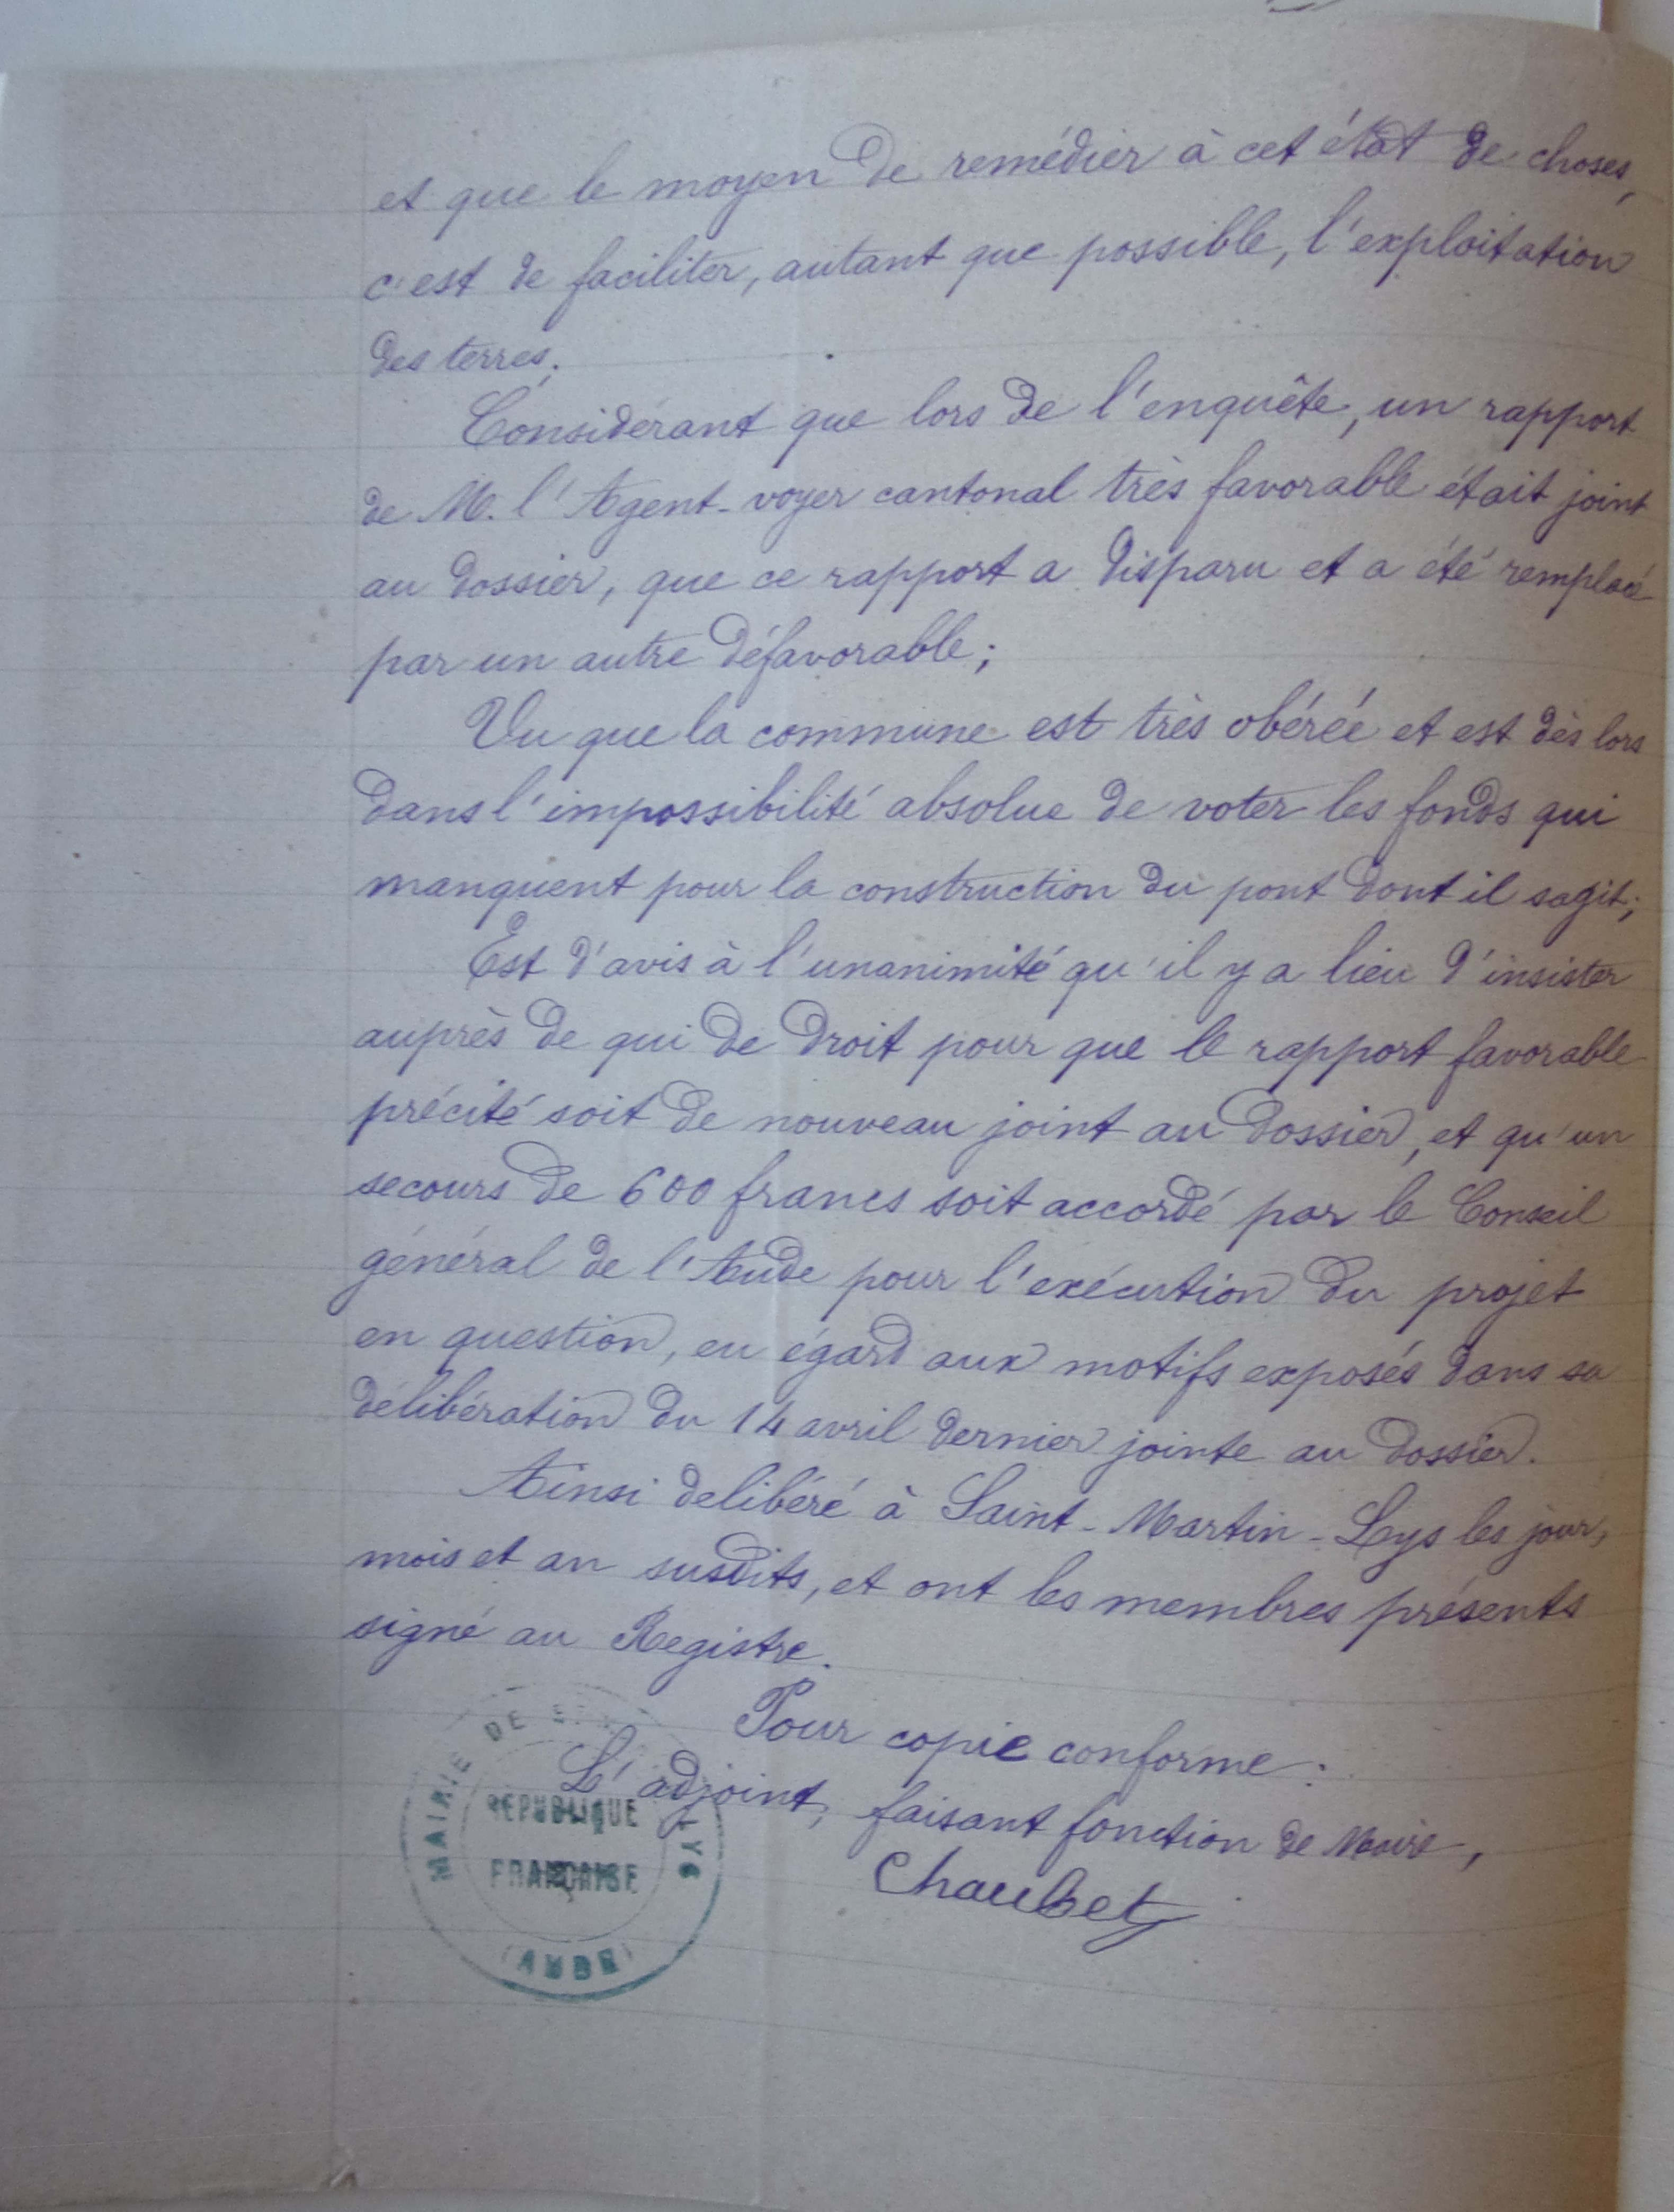 et que le moyen de remédier à cet état de choses,
c'est de faciliter, autant que possible, l'exploitation
des terres;
Considérant que lors de l'enquête, un rapport
de M. l'Agent-voyer cantonal très favorable était joint
au dossier, que ce rapport a disparu et a été remplacé
par un autre défavorable;
Vu que la commune est très obérée et est dès lors
dans l'impossibilité absolue de voter les fonds qui
manquent pour la construction du pont dont il sagit;
Est d'avis à l'unanimité qu'il y a lieu d'insister
auprès de qui de droit pour que le rapport favorable
précité soit de nouveau joint au dossier, et qu'un
secours de 600 francs soit accordé par le Conseil
général de l'Aude pour l'exécution du projet
en question, eu égard aux motifs exposés dans sa
délibération du 14 avril dernier jointe au dossier.
Ainsi delibéré à Saint-Martin-Lys les jour,
mois et an susdits, et ont les membres présents
signé au Registre.
Pour copie conforme:
L'adjoint, faisant fonction de Maire,
Chaubet
MAIRIE DE LYS
REPUBLIQUE
FRANÇAISE
(AUDE)